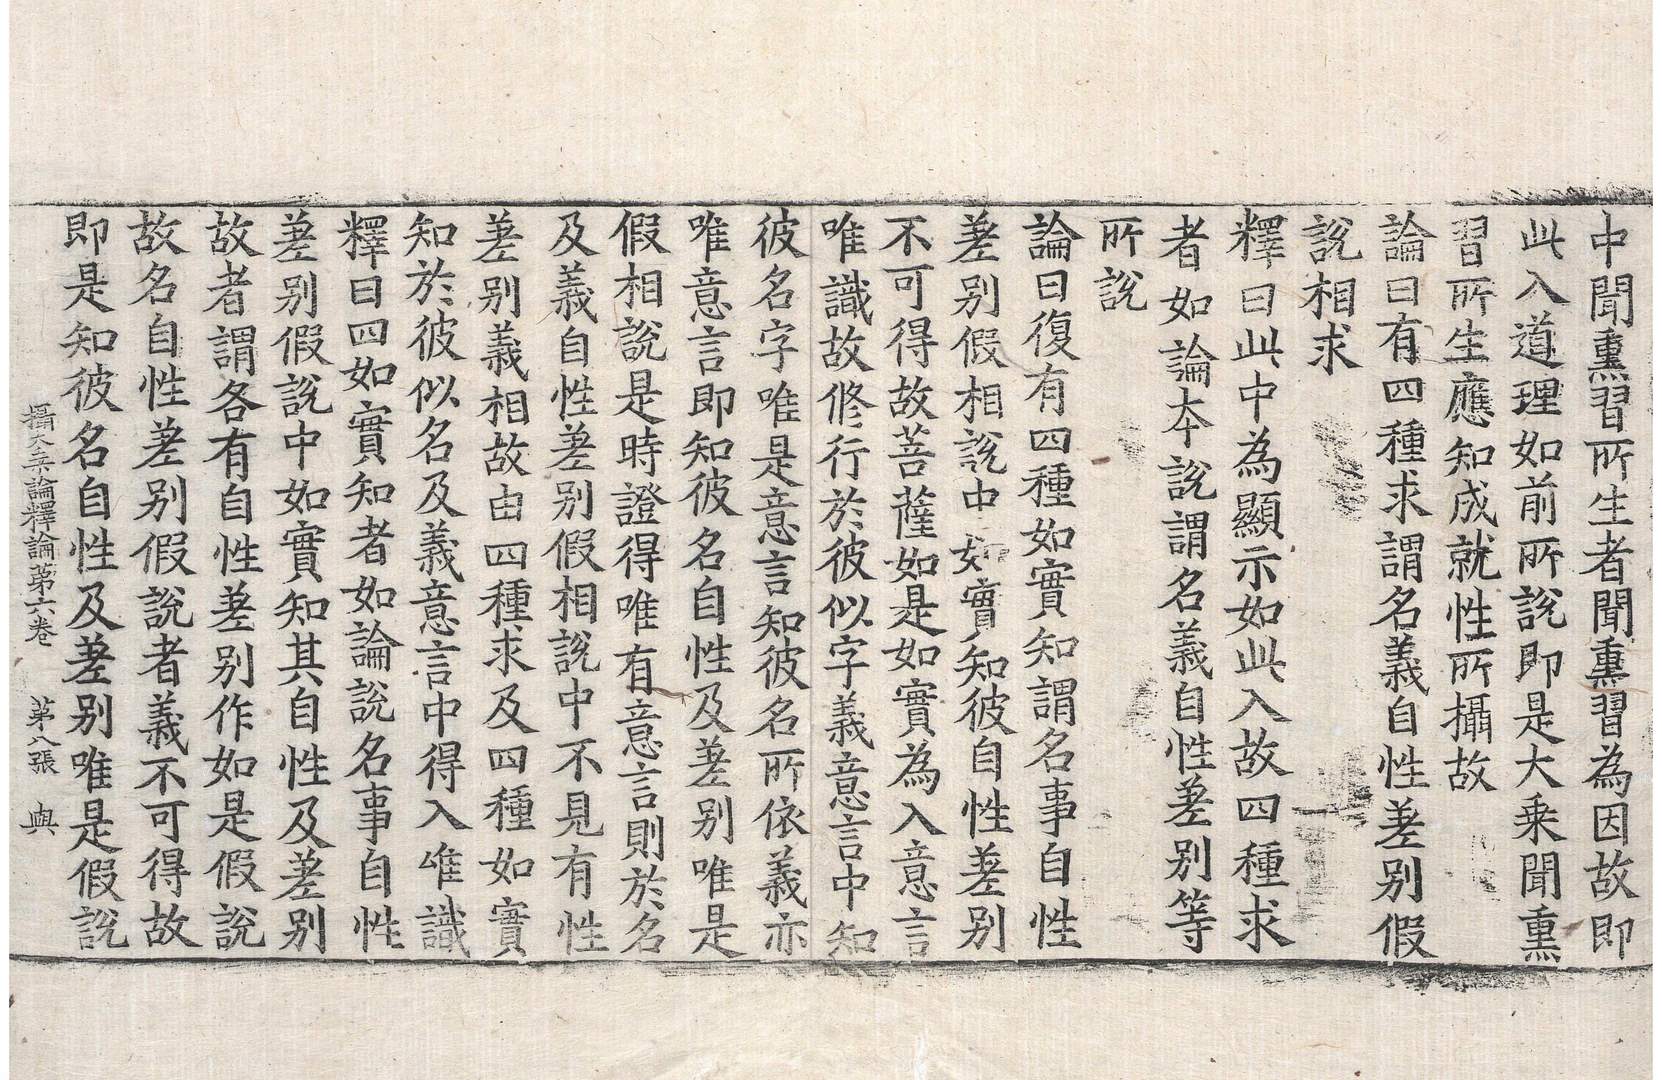 中聞熏習所生者聞熏習為因故即
此入道理如前所說即是大乗聞熏
習所生應知成就性所攝故
論曰有四種求謂名義自性差別假
說相求
釋曰此中為顯示如此入故四種求
者如論本說謂名義自性差別等
所說
論曰復有四種如實知謂名事自性
差別假相說中如實知彼自性差別
不可得故菩薩如是如實為入意言
唯識故修行於彼似字義意言中知
彼名字唯是意言知彼名所依義亦
唯意言即知彼名自性及差別唯是
假相說是時證得唯有意言則於名
及義自性差別假相說中不見有性
差別義相故由四種求及四種如實
知於彼似名及義意言中得入唯識
釋曰四如實知者如論說名事自性
差別假說中如實知其自性及差別
故者謂各有自性差別作如是假說
故名自性差別假說者義不可得故
即是知彼名自性及差別唯是假說
攝大乗論釋論第六卷 第八張 與